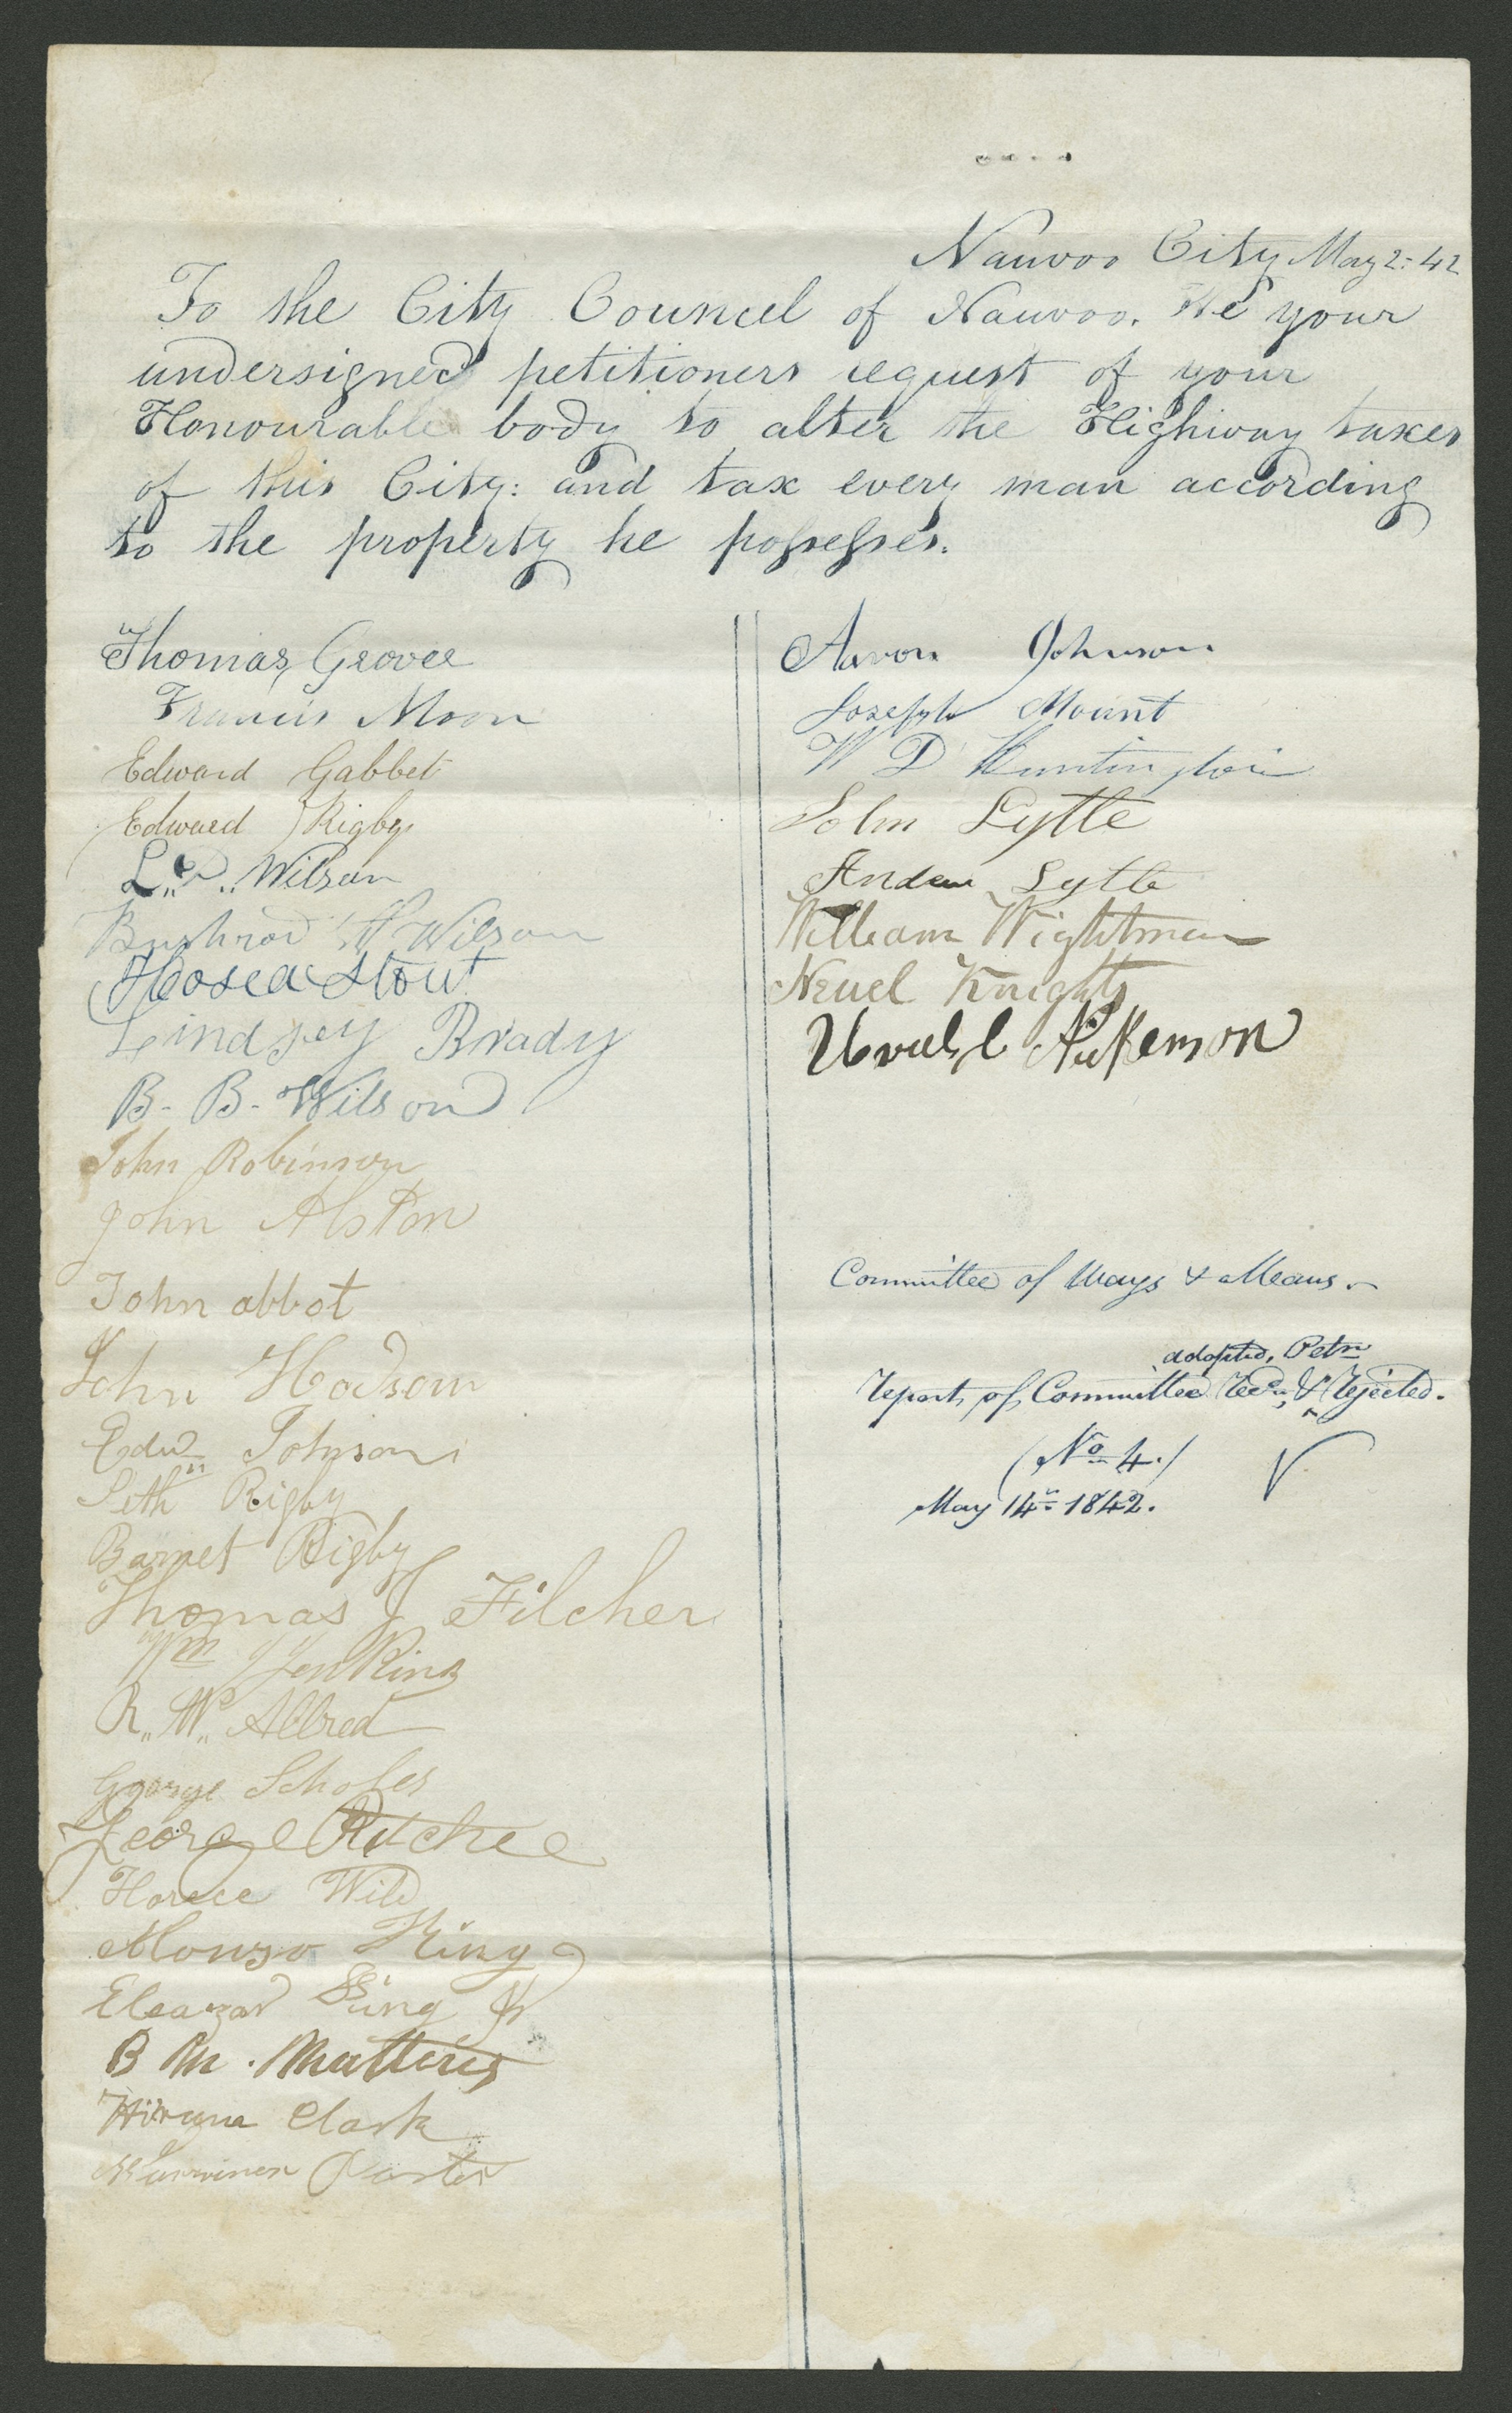 Nauvoo City May 2: 42
To the City Councel of Nauvoo. We your
undersigned petitioners request of your
Honourable body to alter the Highway taxes
of this City: and tax every man according
to the property he possesses.
Thomas Grover
Francis Moon
Edward Gabbet
Edward Rigby
L. D. Wilson
Bushrod W Wilson
Hosea Stout
Lindsey Brady
B. B. Wilson
John Robinson
John Alston
John abbot
John Hodson
Edwn Johnson
Seth Rigby
Barnet Rigby
Thomas J Filcher
Wm Jenkins
R. W. Allred
George Scholes
George Ritchee
Horace Wild
Alonzo King
Eleazar King Jr
B M. Matteus
Hiram Clark
Porter
Aaron Johnson
Joseph Mount
W D Huntington
John Lytle
Andrew Lytle
William Wightman
Newel Knight
Uriah C Nickerson
Committee of Ways & Means.
adopted, Petn
Report of Committee Recd, & Rejected.
(No 4.)
May 14th 1842.